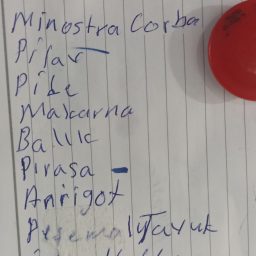 Minostra Corba
Pilav
Pide
Makarna
Balık
Pırasa -
Anrigot
Tavuk